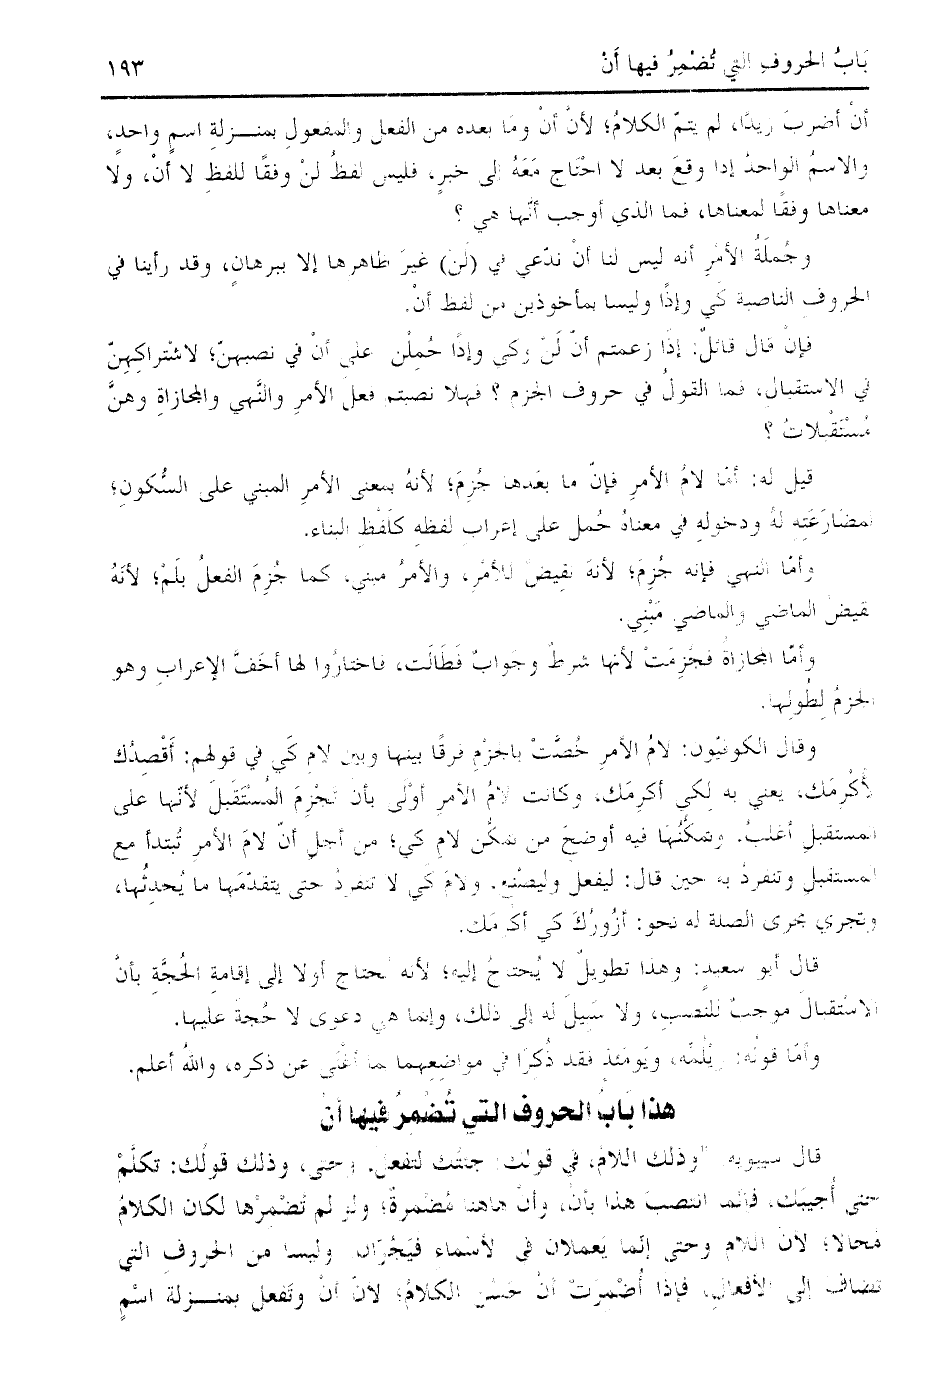 بَابُ الحروفِ التي تُضْمِرُ فيها أَنْ ١٩٣
أنْ أضربَ زيدًا، لم يتمّ الكلامُ؛ لأنّ أنْ ومَا بعده من الفعل والمفعولِ بمنـزلةِ اسمٍ واحدٍ،
والاسمُ الواحدُ إذا وقعَ بعد لا احْتَاج مَعَهُ إلى خبرٍ، فليس لفظُ لنْ وفقًا للفظِ لا أنْ، ولا
معناها وفقًا لمعناها، فما الذي أوجب أنّها هي ؟
وجُملَةُ الأمْرِ أنه ليس لنا أنْ ندّعي في (لَنْ) غيرَ ظاهرها إلا ببرهانٍ، وقد رأينا في
الحروف الناصبة كَي وإذًا وليسا بمأخوذين من لفظ أنْ.
فإنْ قال قائلٌ: إذَا زعمتم أنّ لَنْ وكي وإذًا حُمِلْن على أنْ في نصبهنّ؛ لاشْتراكِهِنّ
في الاستقبال، فما القولُ في حروف الجزم ؟ فهلا نصبتم فعلَ الأمرِ والنَّهي والمجازاةِ وهنَّ
مُسْتَقْبلاتُ ؟
قيل له: أمّا لامُ الأمرِ فإنّ ما بعَدها جُزِمَ؛ لأنهُ بمعنى الأمرِ المبني على السُّكونِ؛
لمضَارَعَتِهِ لهُ ودخولهِ في معناهُ حُمل على إعرابِ لفظه كَلَفْظِ البناء.
وأمّا النهي فإنه جُزِمَ؛ لأنهَ نقِيضٌ للأمْرِ، والأمرُ مبني، كما جُزِمَ الفعلُ بلَمْ؛ لأنَهُ
نقيضُ الماضي والماضي مَبْنِي.
وأمّا المجازاةُ فجُزِمَتْ لأنها شرطٌ وجوابٌ فَطَالَت، فاختارُوا لها أخَفَّ الإعرابِ وهو
الجزمُ لِطُولِها.
وقال الكوفيّون: لامُ الأمرِ خُصَّتْ بالجزْمِ فرقًا بينها وبين لامِ كَي في قولهم: أقْصِدُك
لأكْرِمَك، يعني به لِكي أكرِمَك، وكانت لامُ الأمرِ أوْلَى بأن تَجْزِمَ المُسْتَقبَلَ لأنّها على
المستقبلِ أغلبُ. وتمكُّنُهَا فيه أوضحَ من تمكُّنِ لامِ كي؛ من أجلِ أنّ لامَ الأمرِ تُبتدأ مع
المستقبلِ وتنفردُ به حين قال: ليفعل وليصْنَع. ولامَ كَي لا تنفردُ حتى يتقدّمَها ما يُحدثُها،
وتجري مجرى الصلة له نحو: أزُورُكَ كي أكرمَك.
قال أبو سعيدٍ: وهذا تطويلٌ لا يُحتاجُ إليه؛ لأنه يحتاج أولا إلى إقامةِ الحُجَّةِ بأنَّ
الاسْتقبالَ موجبٌ للنصبِ، ولا سَبيلَ له إلى ذلك، وإنما هي دعوى لا حُجةَ عليها.
وأمّا قولُه: وَيْلُمِّه، ويَومَئذ فقد ذُكرَا في مواضعِهما بما أغْنَى عن ذكرِه، واللهُ أعلم.
هذا بابُ الحروف التي تُضْمِرُ فيها أنْ
قال سيبويه: "وذلك اللامُ، في قولك: جئتُك لتفعل. وحتى، وذلك قولُك: تكلَّمْ
حتى أُجيبَك، فإنما انتصبَ هذا بأنْ، وأنْ هاهنا مُضْمرةٌ؛ ولو لم تُضْمرْها لكان الكلامُ
مُحالا؛ لأنّ اللام وحتى إنّما يَعملان في الأسماء فيَجُرّان. وليسا من الحروف التي
تضافُ إلى الأفعالِ، فإذا أُضْمِرَتْ أنْ حَسُنَ الكلامُ؛ لأنّ أنْ وتَفعل بمنـزلة اسْمٍ